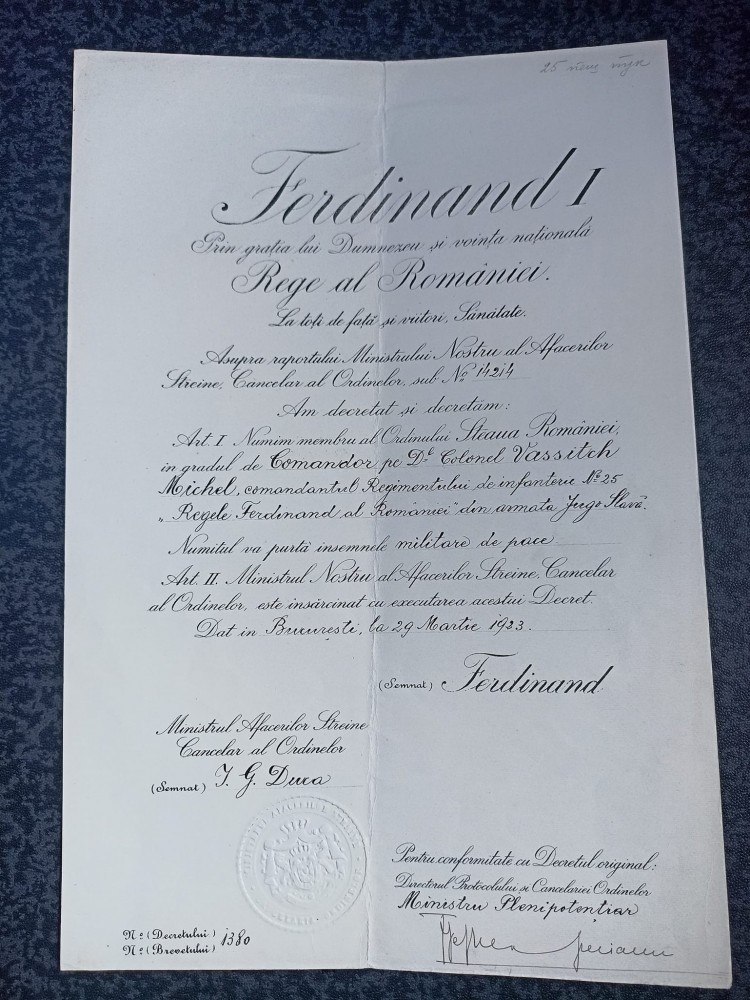 25 пеш. пук
Ferdinand I
Prin grația lui Dumnezeu și voința națională
Rege al României.
La toți de față și viitori, Sănătate.
Asupra raportului Ministrului Nostru al Afacerilor
Streine, Cancelar al Ordinelor, sub No. 14214
Am decretat și decretăm:
Art. I. Numim membru al Ordinului Steaua României,
in gradul de Comandor, pe Dl. Colonel Vassitch
Michel, comandantul Regimentului de infanterie No 25
„Regele Ferdinand al României" din armata Jugo Slavă.
Numitul va purtă insemnele militare de pace.
Art. II. Ministrul Nostru al Afacerilor Streine, Cancelar
al Ordinelor, este insărcinat cu executarea acestui Decret.
Dat in București, la 29 Martie 1923.
(Semnat) Ferdinand
Ministrul Afacerilor Streine
Cancelar al Ordinelor
(Semnat) I. G. Duca
Pentru conformitate cu Decretul original:
Directorul Protocolului și Cancelariei Ordinelor
Ministru Plenipotențiar
No. (Decretului)
No. (Brevetului) 1380